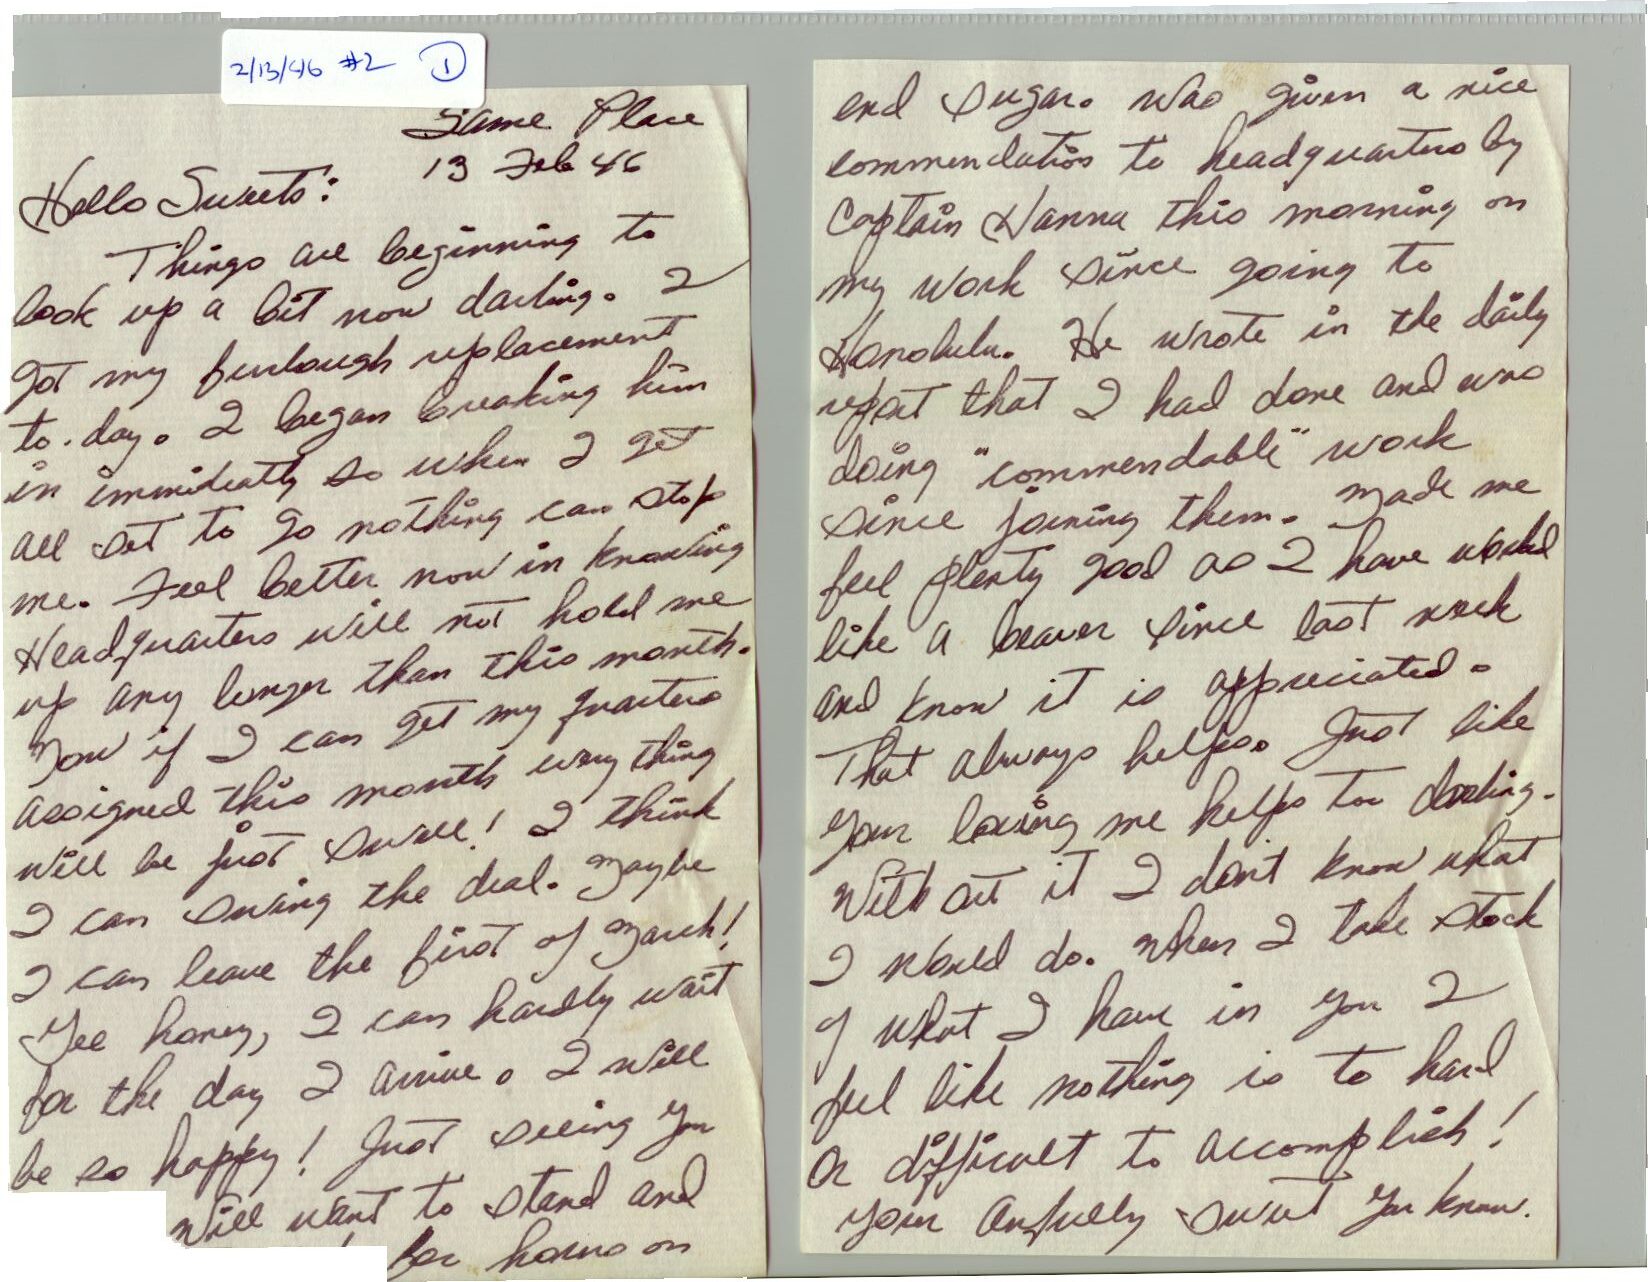 2/13/46 #2 1
Same Place
13 Feb 46
Hello Sweets:
Things are beginning to
look up a bit now darling. I
got my furlough replacement
to-day. I began breaking him
in immidiatly so when I get
all set to go nothing can stop
me. Feel better now in knowing
Headquarters will not hold me
up any longer than this month.
Now if I can get my quarters
assigned this month everything
will be just swell! I think
I can swing the deal. Maybe
I can leave the first of March!
Gee honey, I can hardly wait
for the day I arrive. I will
be so happy! Just seeing you
will want to stand and
for hours on
end sugar. Was given a nice
commendation to headquarters by
Captain Hanna this morning on
my work since going to
Honolulu. He wrote in the daily
report that I had done and was
doing "commendable" work
since joining them. Made me
feel plenty good as I have worked
like a beaver since last week
and know it is appreciated.
That always helps. Just like
your loving me helps too darling.
With out it I don't know what
I would do. When I take stock
of what I have in you I
feel like nothing is to hard
or difficult to accomplish!
Your awfully sweet you know.